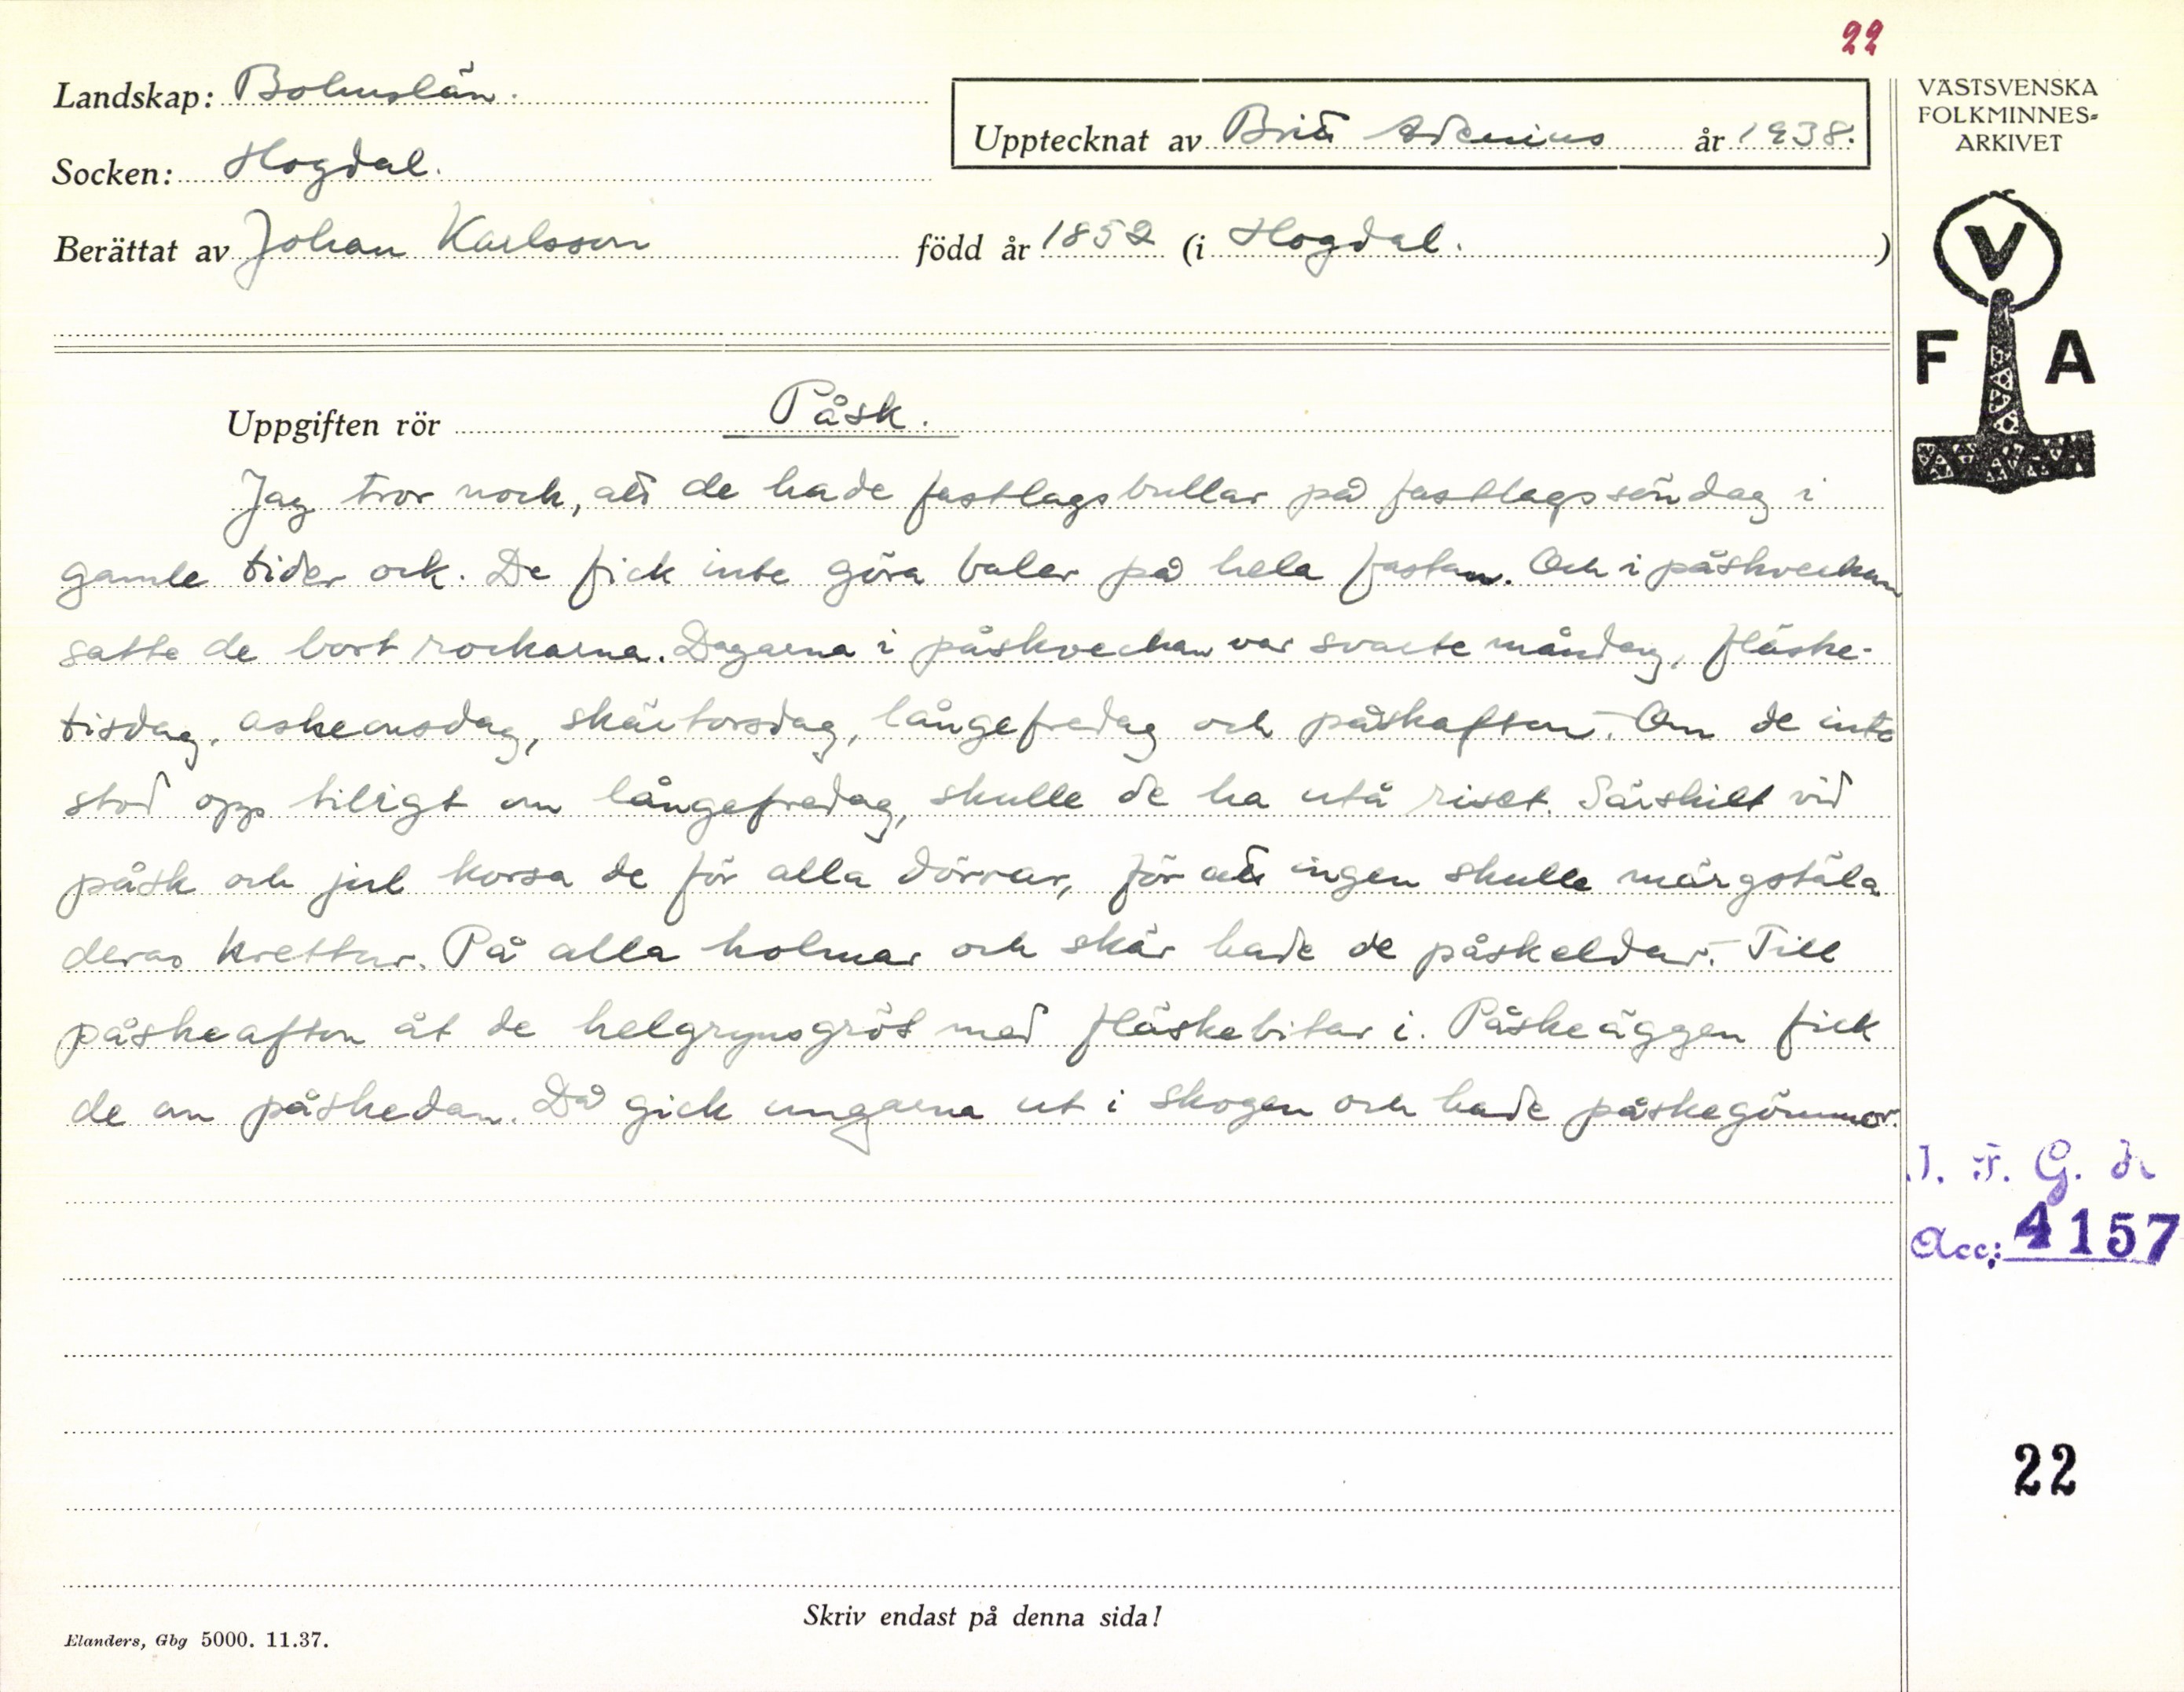 22
Landskap: Bohuslän.
VÄSTSVENSKA
FOLKMINNES=
ARKIVET
Upptecknat av Britt Adenius år 1938.
Socken: Hogdal.
Berättat av Johan Karlsson född år 1852 (i Hogdal. )
V
F A
Uppgiften rör Påsk.
Jag tror nock, att de hade fastlagsbullar på fastlagssöndag i
gamle tider ock. De fick inte göra baler på hela fastan. Och i påskveckan
satte de bort rockarna. Dagarna i påskveckan var svarte måndag, fläske-
tisdag, askeonsdag, skärtorsdag, långefredag och påskafton. Om de inte
stod opp tiligt om långefredag, skulle de ha utå riset. Särskilt vid
påsk och jul korsa de för alla dörrar, för att ingen skulle märgstäla
deras krettur. På alla holmar och skär hade de påskeldar. Till
påskeafton åt de helgrynsgröt med fläskebitar i. Påskeäggen fick
de om påskedan. Då gick ungarna ut i skogen och hade påskegömmor.
I. F. G. h
Acc: 4157
22
Skriv endast på denna sida!
Elanders, Gbg 5000. 11.37.